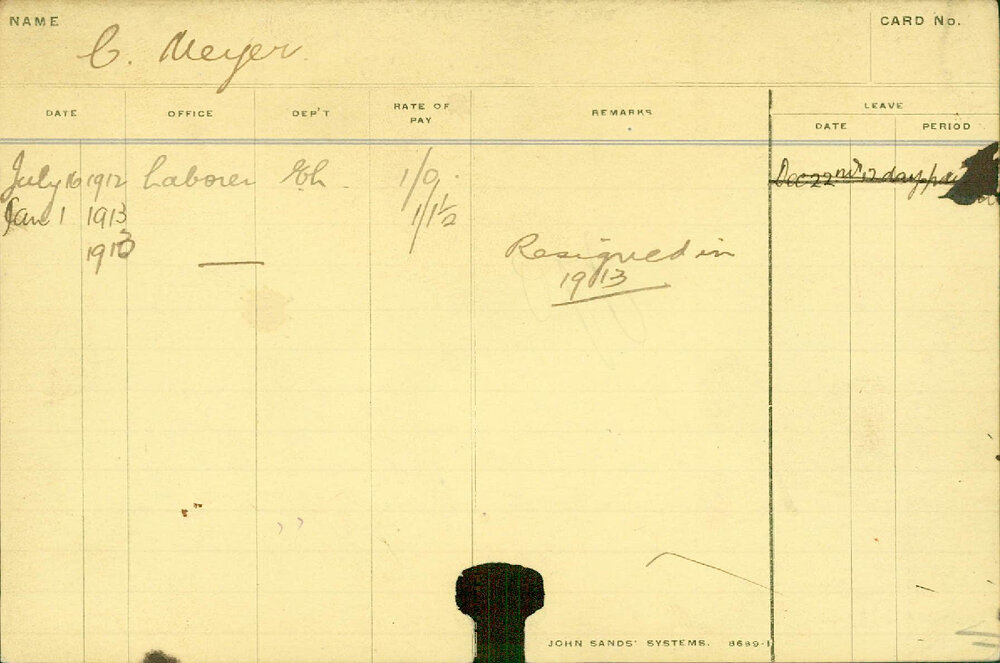 NAME
CARD No.
C. Meyer
DATE OFFICE DEP'T RATE OF PAY REMARKS LEAVE
DATE PERIOD
July 16 1912 Laborer 1/0. Dec 22nd 12 days
Jan 1 1913 1/1½
1913 — Resigned in
1913
JOHN SANDS' SYSTEMS. 8689-1